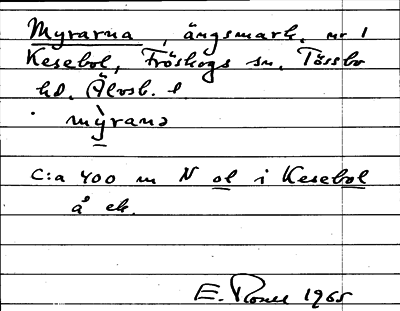 Myrarna, ängsmark. nr 1
Kesebol, Fröskogs sn. Tössbo
hd. Älvsb. l.
mỳrana
C:a 400 m N ol i Kesebol
å ek.
E. 1965